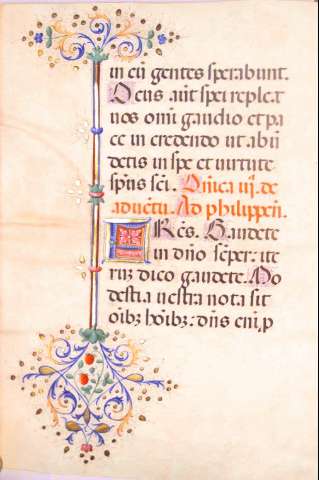 in eū gentes sperabunt.
Deus aūt spei repleat
uos omi gaudio et pa
ce in credendo ut abū
detis in spe et uirtute
sp̄us sc̄i. Dn̄ica iij. de
aduētu. Ad philippeñ.
FRēs. Gaudete
in dn̄o sēper: ite
rū dico gaudete. Mo
destia uestra nota sit
oībꝫ hoībꝫ: dn̄s eni, p